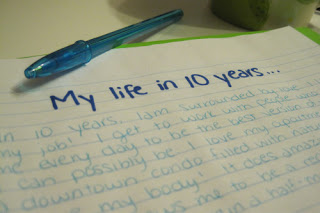 My life in 10 years...
in 10 years, I am surrounded by love
my job! I get to work with people
me every day to be the best version
I can possibly be! I love my
downtown condo filled with natu
my body! It does amaz
me to be a
in a half-m